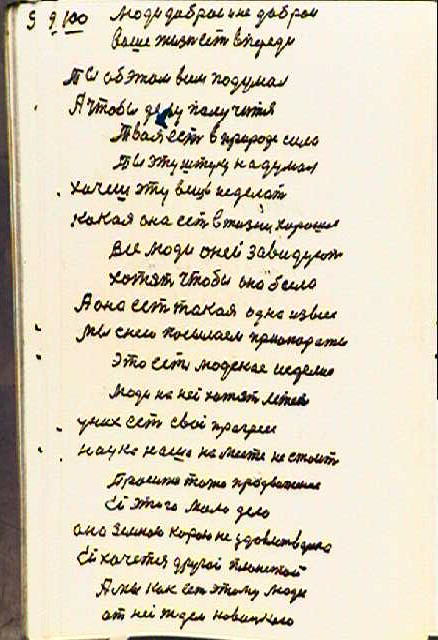 9 9 100 Люди добрые не добрые
Ваше жизн ест впереди
Ты об этом всем подумал
А чтобы делу получится
Твая ест в природе сила
Ты эту штуку надумал
хочеш эту вещь изделат
какая она ест в жизни хорошие
Все люди оней завидуют
хотят чтобы она была
А она ест такая одна из всех
мы снею посылаем
Это ест людское изделие
Люди на ней хотят летет
у них ест свой прагрес
наука наша на месте не стоит
Просит тоже продвежение
Ей этого мало дело
она Земною корою не здовлитворена
Ей хочется другой планетой
А мы как ест этому люди
от ней ждем